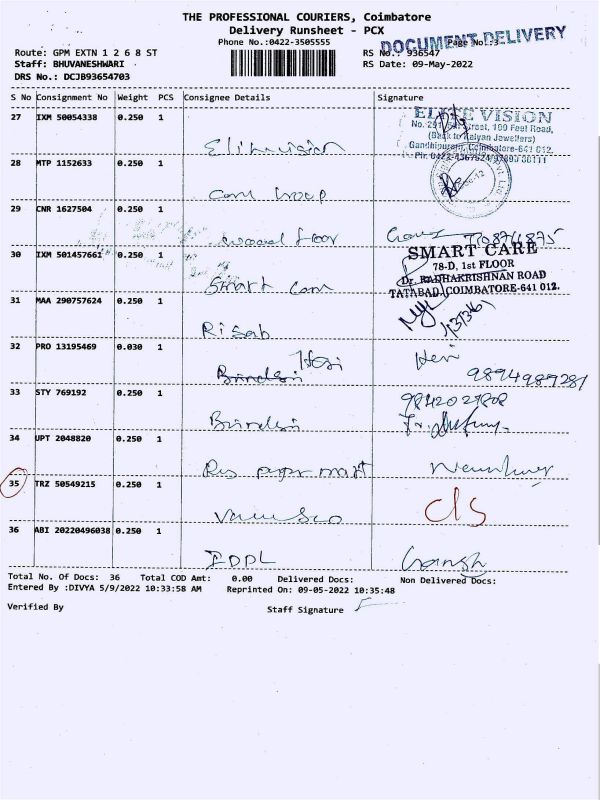 THE PROFESSIONAL COURIERS, Coimbatore
Delivery Runsheet - PCX
Phone No.:0422-3505555
Page No.:3
DOCUMENT DELIVERY
Route: GPM EXTN 1 2 6 8 ST
RS No.: 936547
Staff: BHUVANESHWARI
RS Date: 09-May-2022
DRS No.: DCJB93654703
S No Consignment No Weight PCS Consignee Details Signature
27 IXM 50054338 0.250 1
ELITE VISION
No. 291, Street, 100 Feet Road,
(Back to Kalyan Jewellers)
Gandhipuram, Coimbatore-641 012.
Elitevision
28 MTP 1152633 0.250 1
29 CNR 1627504 0.250 1
wood floor
30 IXM 501457661 0.250 1
SMART CARE
78-D, 1st FLOOR
Dr. RADHAKRISHNAN ROAD
TATABAD, COIMBATORE-641 012.
Smart Care
31 MAA 290757624 0.250 1
Risab
32 PRO 13195469 0.030 1
Hosi
9894989281
33 STY 769192 0.250 1
34 UPT 2048820 0.250 1
paper mart
35 TRZ 50549215 0.250 1
cls
36 ABI 20220496038 0.250 1
IDDL Ganesh
Total No. Of Docs: 36 Total COD Amt: 0.00 Delivered Docs: Non Delivered Docs:
Entered By :DIVYA 5/9/2022 10:33:58 AM Reprinted On: 09-05-2022 10:35:48
Verified By
Staff Signature